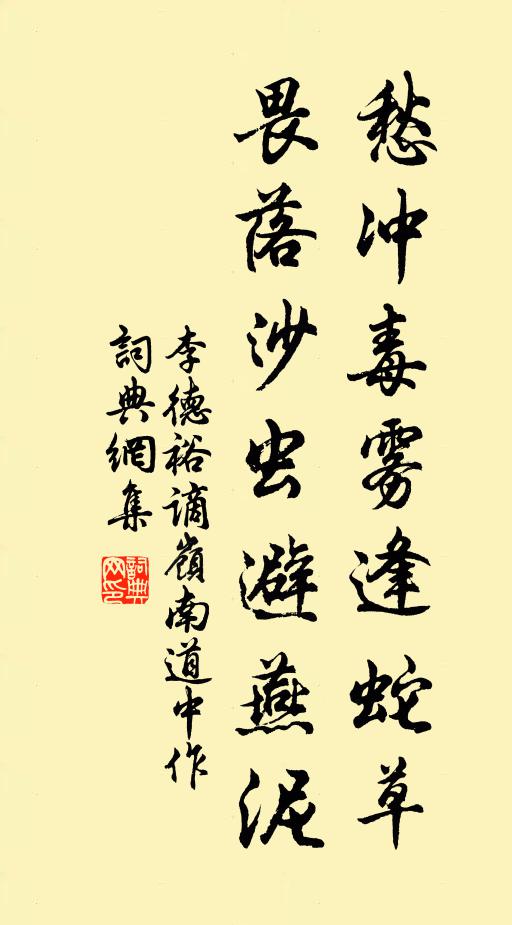 愁冲毒雾逢蛇草
畏落沙虫避燕泥
李德裕谪嶺南道中作
詞典網集
詞典网印